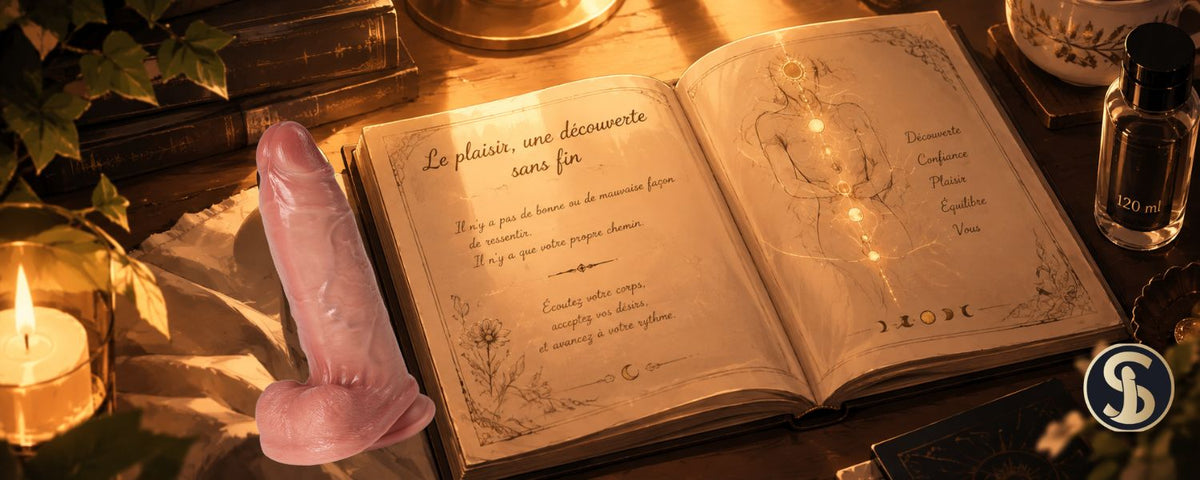 Le plaisir, une découverte
sans fin
Il n'y a pas de bonne ou de mauvaise façon
de ressentir.
Il n'y a que votre propre chemin.
Écoutez votre corps,
acceptez vos désirs,
et avancez à votre rythme.
Découverte
Confiance
Plaisir
Équilibre
Vous
120 ml
SB